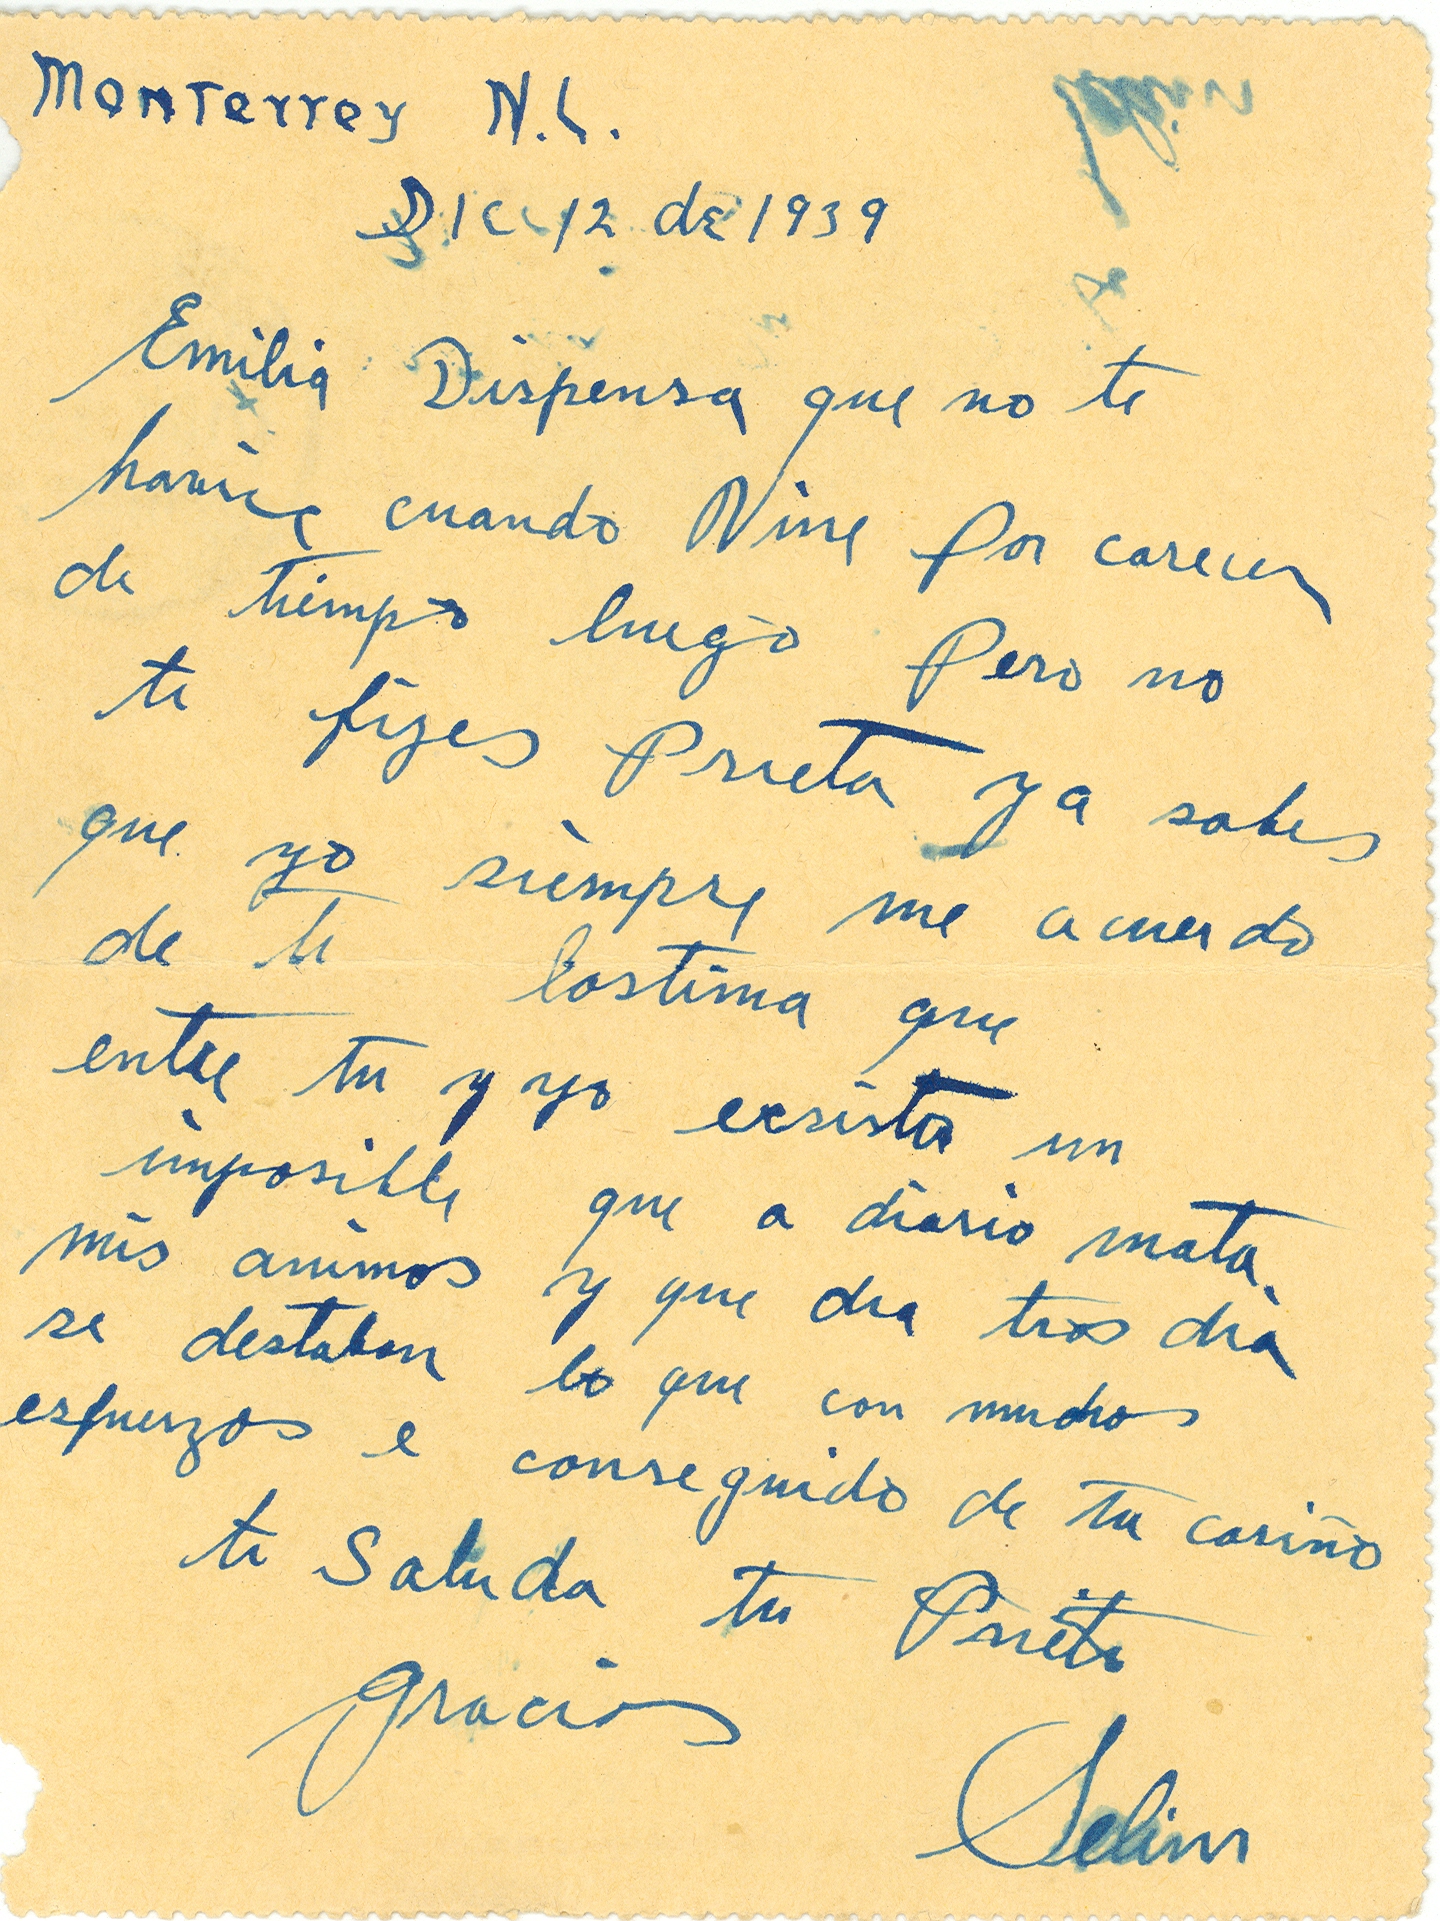 Monterrey N.L.
Dic 12 de 1939
Emilia Dispensa que no te
cuando Vine por carecer
de tiempo luego Pero no
te fizes Prieta ya sabes
que yo siempre me acuerdo
de ti lastima que
entre tu y yo exsista un
imposible que a diario mata
mis animos y que dia tras dia
se destaban lo que con muchos
esfuerzos e conseguido de tu cariño
te Saluda tu Prieto
gracias
Selim